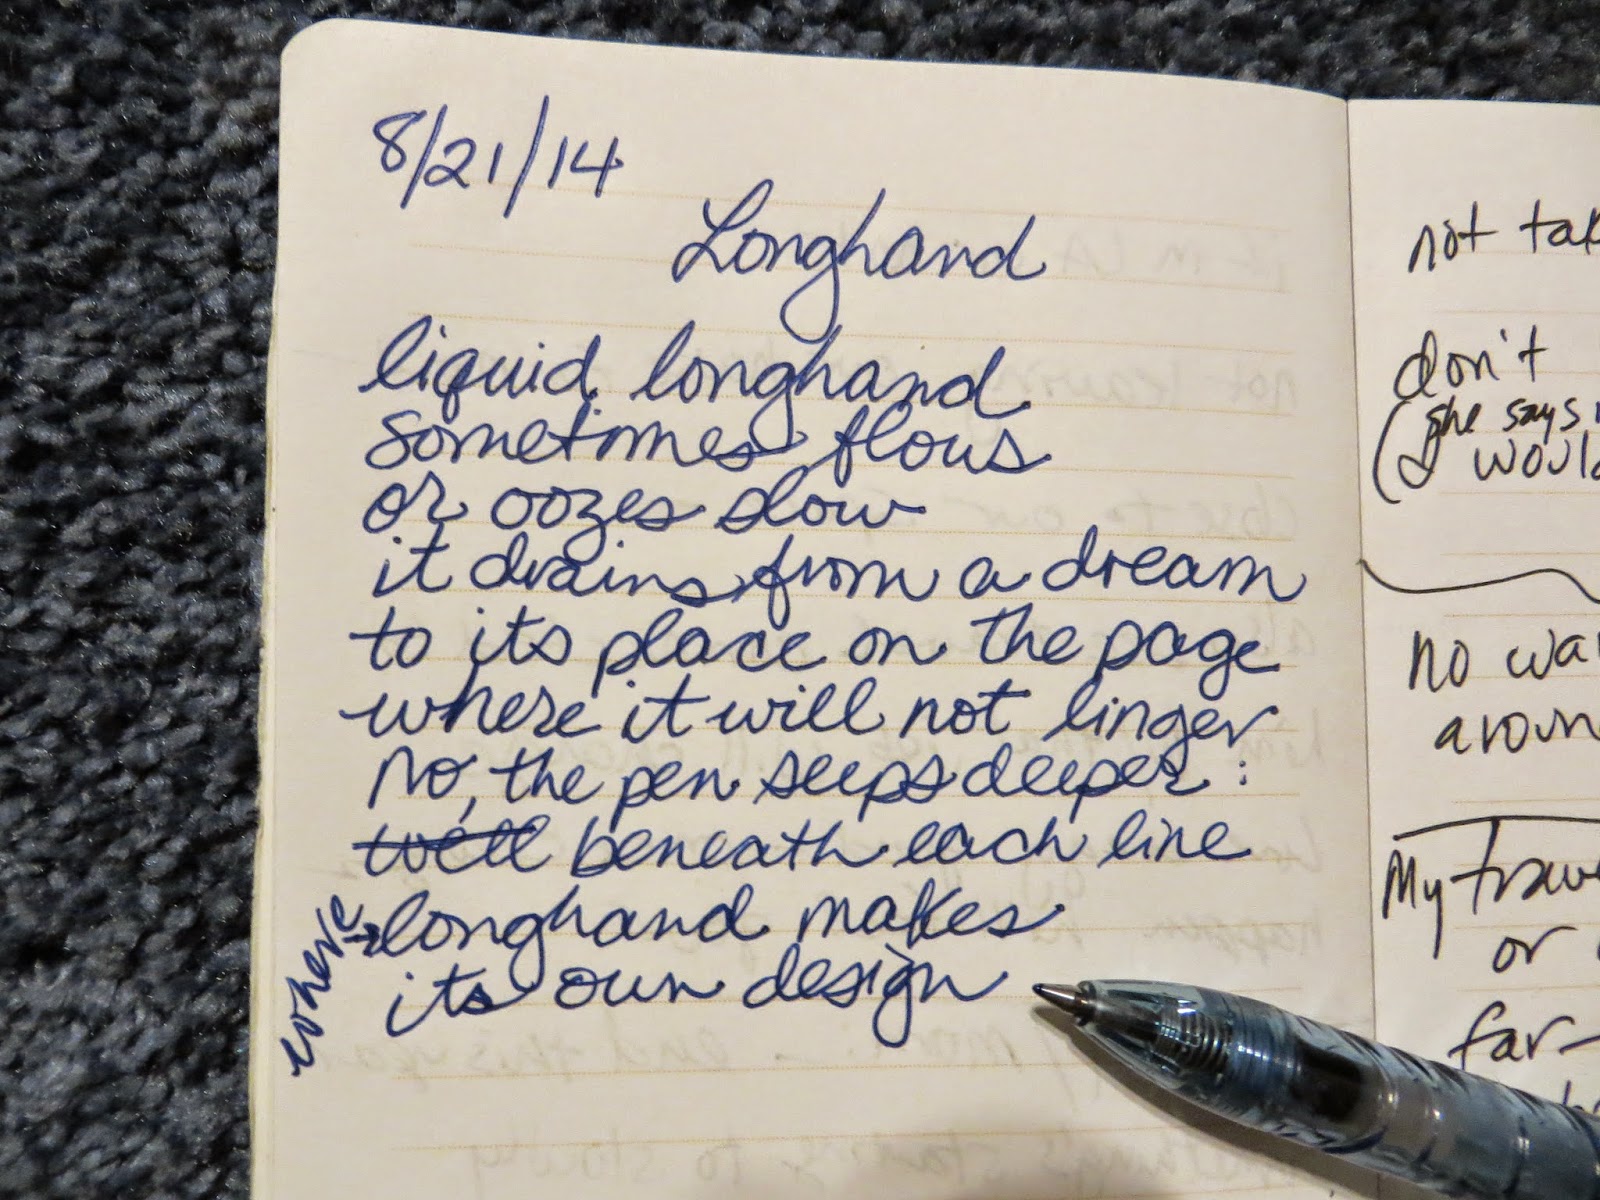 8/21/14
Longhand
liquid longhand
sometimes flows
or oozes slow
it drains from a dream
to its place on the page
where it will not linger
No, the pen seeps deeper:
well beneath each line
where longhand makes
its own design
not
don't
(she says
would
no
My
or
far-